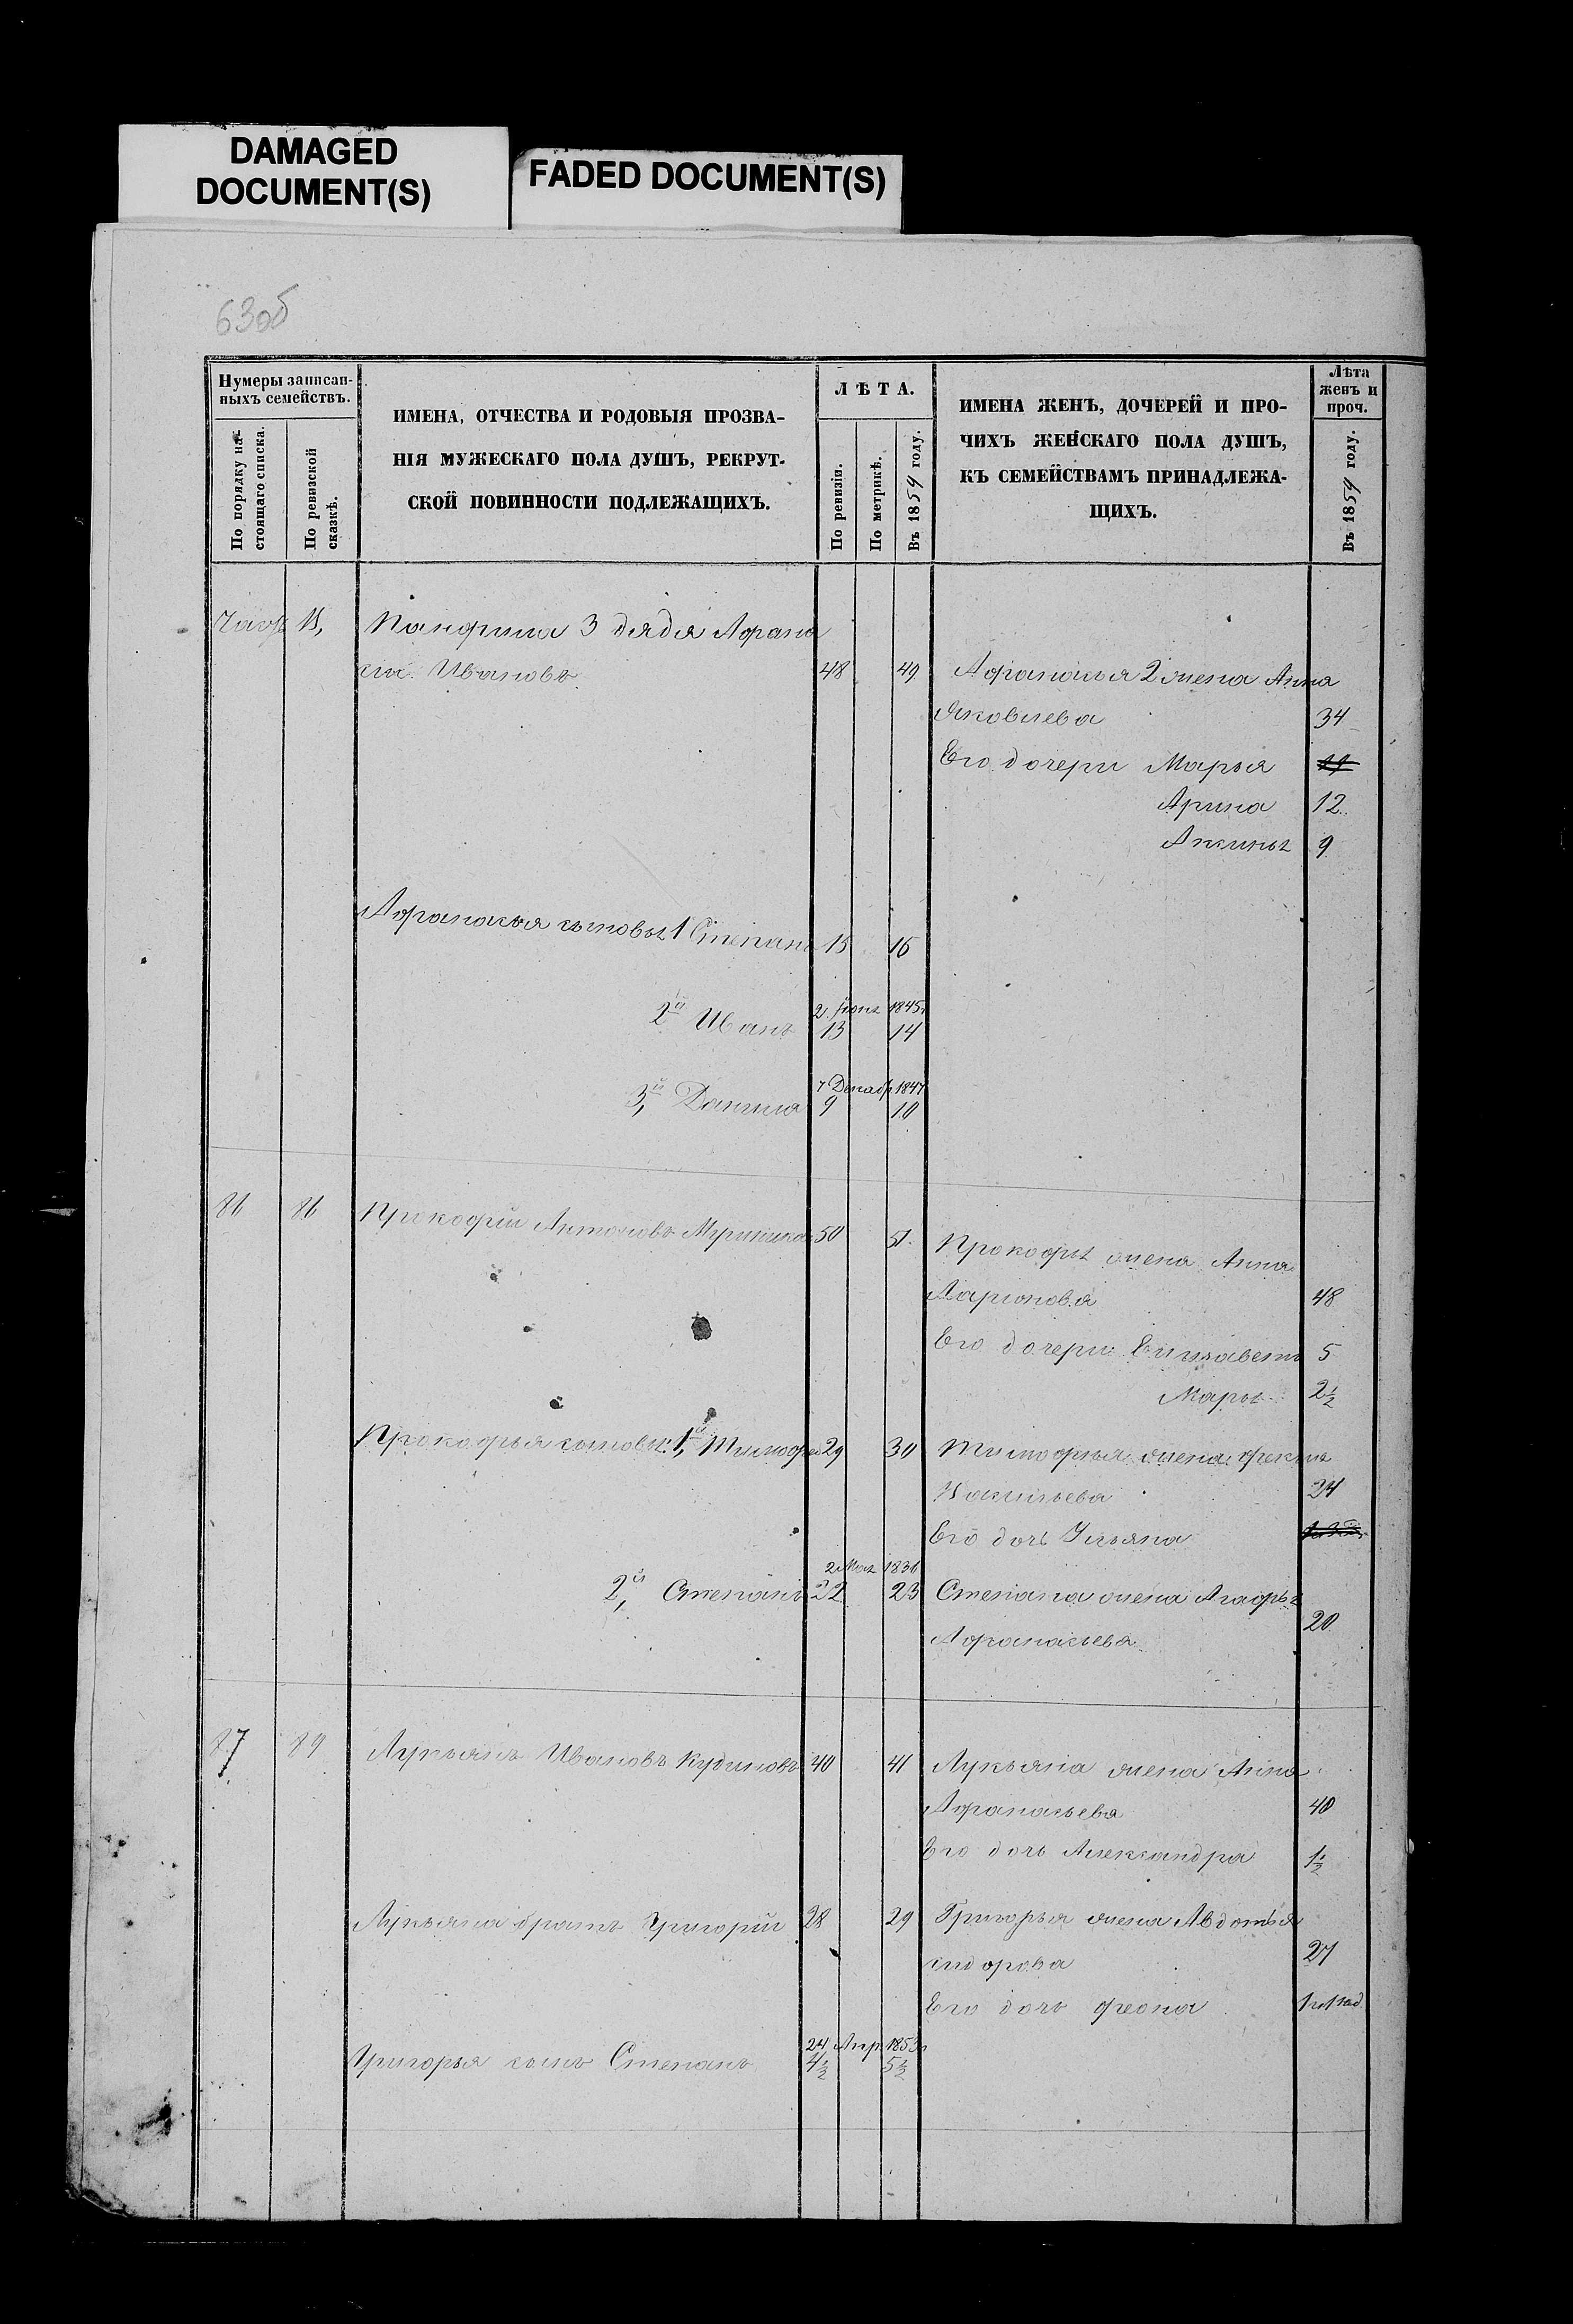 DAMAGED
DOCUMENT(S)
FADED DOCUMENT(S)
63об
Нумеры записан-
ныхъ семействъ.
По порядку на-
стоящаго списка.
По ревизской
сказкѣ.
ИМЕНА, ОТЧЕСТВА И РОДОВЫЯ ПРОЗВА-
НІЯ МУЖЕСКАГО ПОЛА ДУШЪ, РЕКРУТ-
СКОЙ ПОВИННОСТИ ПОДЛЕЖАЩИХЪ.
ЛѢТА.
По ревизіи.
По метрикѣ.
Въ 1859 году.
ИМЕНА ЖЕНЪ, ДОЧЕРЕЙ И ПРО-
ЧИХЪ ЖЕНСКАГО ПОЛА ДУШЪ,
КЪ СЕМЕЙСТВАМЪ ПРИНАДЛЕЖА-
ЩИХЪ.
Лѣта
женъ и
проч.
Въ 1859 году.
Панфила 3 дядя Афана
сій Ивановъ 48 49
Афанасья 2 жена Анна
Яковлева 34
Его дочери Марья
Арина 12
Аксинья 9
Афанасья сыновья 1 Степанъ 15 16
2й Иванъ 2 Іюня 1845 13 14
3й Данила 7 Декабр 1847 9 10
86 86 Прокофій Антоновъ 50 51
Прокофья жена Анна
Ларионова 48
Его дочери Елизавета 5
Марья 2½
Прокофья сыновья: 1й Тимофей 29 30
Тимофея жена Фекла
Васильева 24
Его дочь Ульяна
2й Степанъ 2 Мая 1836 22 23
Степана жена Агафья
Афанасьева 20
87 89 Лукьянъ Ивановъ Кудиновъ 40 41
Лукьяна жена Анна
Афанасьева 40
Его дочь Александра 1½
Лукьяна братъ Григорій 28 29
Григорья жена Авдотья
сидорова 27
Его дочь Феона
Григорья сынъ Степанъ 24 Апр 1853 4½ 5½